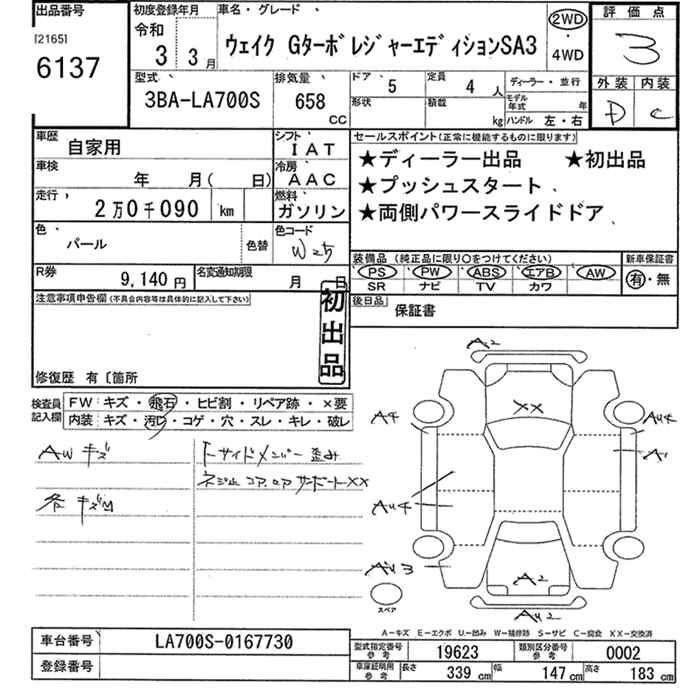 出品番号
[2165]
6137
初度登録年月
令和
3 3月
車名・グレード
ウェイク GターボレジャーエディションSA3
2WD
・
4WD
評価点
3
外装 内装
D C
型式
3BA-LA700S
排気量
658
CC
ドア 5
定員 4人
形状
積載 kg
ディーラー・並行
モデル年式 年
ハンドル 左・右
車歴
自家用
シフト
IAT
車検 年 月( 日)
冷房
AAC
走行
2万0千090 km
燃料
ガソリン
色
パール
色替
色コード
W25
R券
9,140円
名変通知期限 月 日
セールスポイント(正常に機能するものに限ります)
★ディーラー出品 ★初出品
★プッシュスタート
★両側パワースライドドア
装備品(純正品に限り○をつけてください)
PS PW ABS エアB AW
SR ナビ TV カワ
新車保証書
有・無
後日品
保証書
注意事項申告欄(不具合内容等は具体的に記入して下さい)
初出品
修復歴 有〔箇所
検査員記入欄
FW キズ・飛石・ヒビ割・リペア跡・×要
内装 キズ・汚れ・コゲ・穴・スレ・キレ・破レ
AW キズ
各 キズM
トーサイドメンバー歪み
コアロアサポートXX
A2
XX
A4
AU4
A1
AU4
AU3
A2
AU2
スペア
A-キズ E-エクボ U-凹み W-補修跡 S-サビ C-腐食 XX-交換済
車台番号
LA700S-0167730
登録番号
型式指定番号 参考
19623
類別区分番号 参考
0002
車庫証明用 参考
長さ 339 cm 幅 147 cm 高さ 183 cm